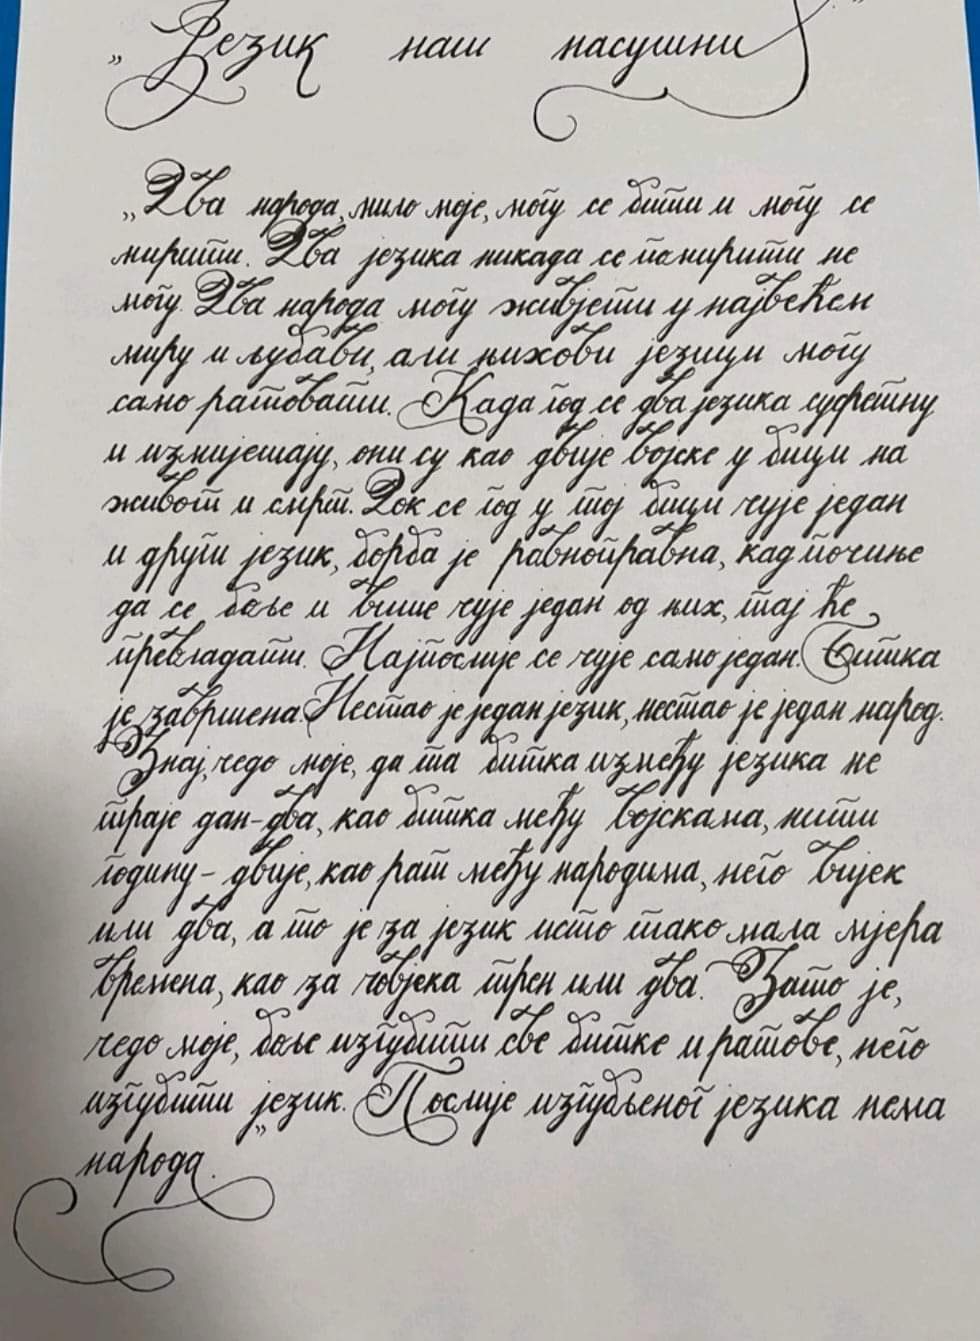 „Језик наш насушни“
„Два народа, мило моје, могу се бити и могу се
мирити. Два језика никада се помирити не
могу. Два народа могу живјети у највећем
миру и љубави, али њихови језици могу
само ратовати. Када год се два језика сусретну
и измијешају, они су као двије војске у бици на
живот и смрт. Док се год у тој бици чује један
и други језик, борба је равноправна, кад почиње
да се боље и више чује један од њих, тај ће
превладати. Најпослије се чује само један. Битка
је завршена. Нестао је један језик, нестао је један народ.
Знај, чедо моје, да та битка између језика не
траје дан-два, као битка међу војскама, нити
годину-двије, као рат међу народима, него вијек
или два, а то је за језик исто тако мала мјера
времена, као за човјека трен или два. Зато је,
чедо моје, боље изгубити све битке и ратове, него
изгубити језик. Послије изгубљеног језика нема
народа.“